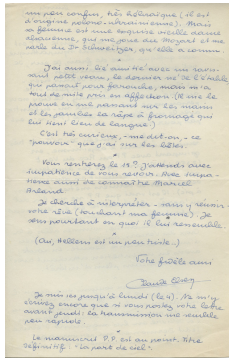 un peu confus, très helvétique (il est
d'origine polono-
sa femme est une exquise vieille dame
qui me joue des Mozart et me
parle du Dr Schweitzer, qu'elle a connu
*
J'ai aussi lié amitié avec un
petit veau, le dernier né de l'étable
qui paraît plus farouche, mais m'a
tout de suite pris en affection (il me le
prouve en me passant sur les mains
et les la râpe à fromage qui
lui tient lieu de langue)
C'est très curieux, - me dit-on, - ce
"pouvoir" que j'ai sur les bêtes.
*
Vous rentrez le 18? J'attends avec
impatience de vous revoir. Avec impa-
tience aussi de connaître Marcel
Arland
Je cherche à interpréter - sans y réussir
votre rêve (touchant ma femme). Je
sens pourtant en quoi il lui ressemble.
*
(Oui, Hellens est un peu triste...)
Votre fidèle ami
Je suis ici jusqu'à lundi (le 4). Ne m'y
écrivez encore que si vous postez votre lettre
avant jeudi: la transmission me semble
peu rapide.
*
Le manuscrit P.P. est au point. Titre
définitif: "La part du ciel".